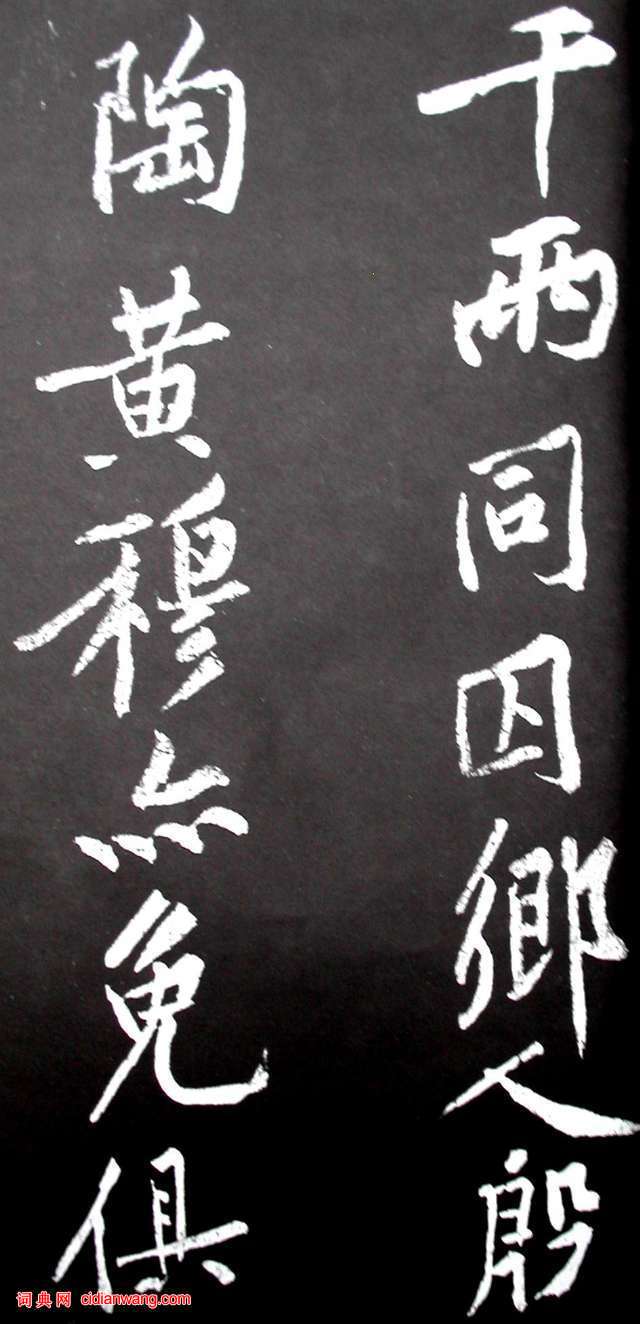 千兩同囚鄉人殷
陶黃穆亦免俱
词典网 cidianwang.com